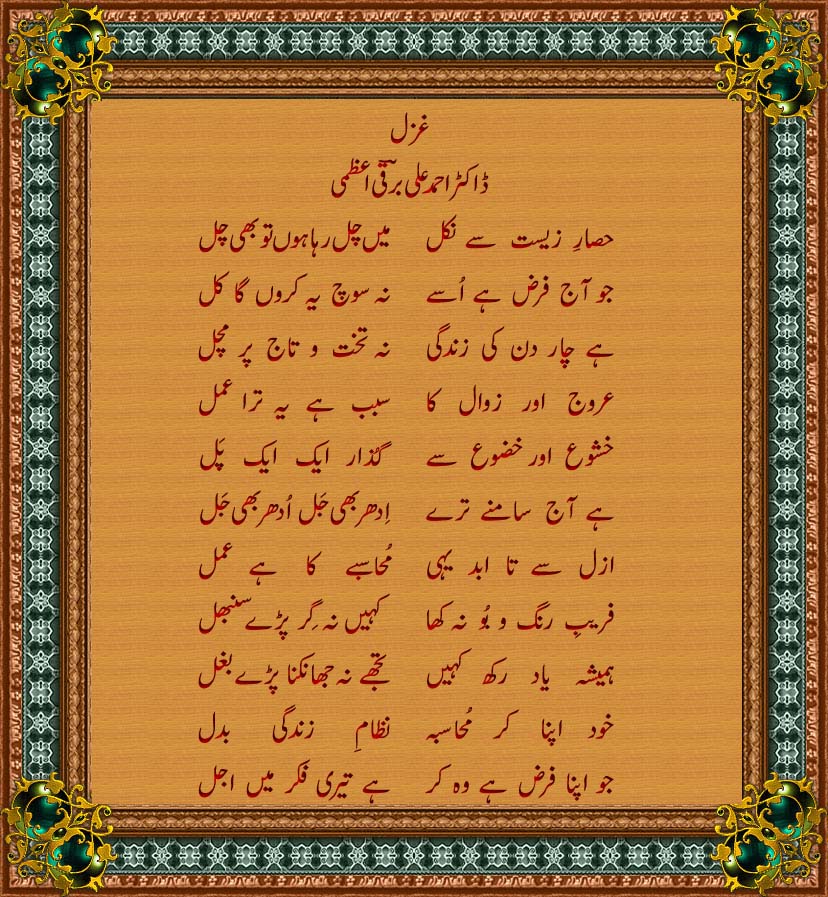 غزل
ڈاکٹر احمد علی برقیؔ اعظمی
حصارِ زیست سے نکل میں چل رہا ہوں تو بھی چل
جو آج فرض ہے اُسے نہ سوچ یہ کروں گا کل
ہے چار دن کی زندگی نہ تخت و تاج پر مچل
عروج اور زوال کا سبب ہے یہ ترا عمل
خشوع اور خضوع سے گذار ایک ایک پَل
ہے آج سامنے ترے اِدھر بھی جَل اُدھر بھی جَل
ازل سے تا ابد یہی مُحاسبے کا ہے عمل
فریبِ رنگ و بوُ نہ کھا کہیں نہ گِر پڑے سنبھل
ہمیشہ یاد رکھ کہیں تجھے نہ جھانکنا پڑے بغل
خود اپنا کر مُحاسبہ نظامِ زندگی بدل
جو اپنا فرض ہے وہ کر ہے تیری فکر میں اجل